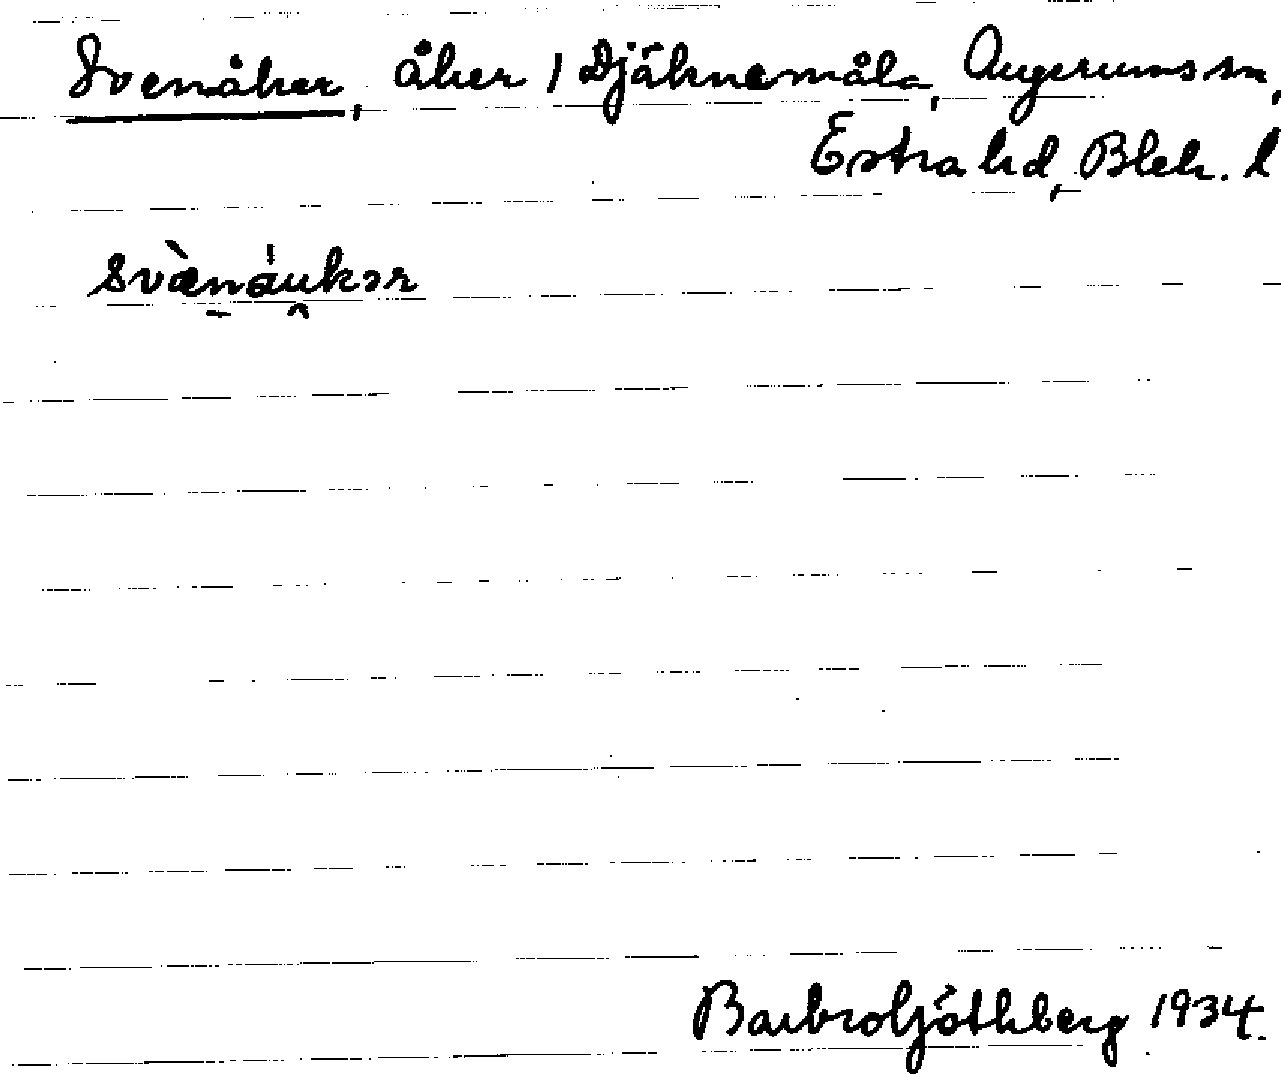 Svenåker, åker i Djäknemåla, Augerums sn,
Östra hd, Blek. l
svὰenáukər
Barbro Göthberg 1934.